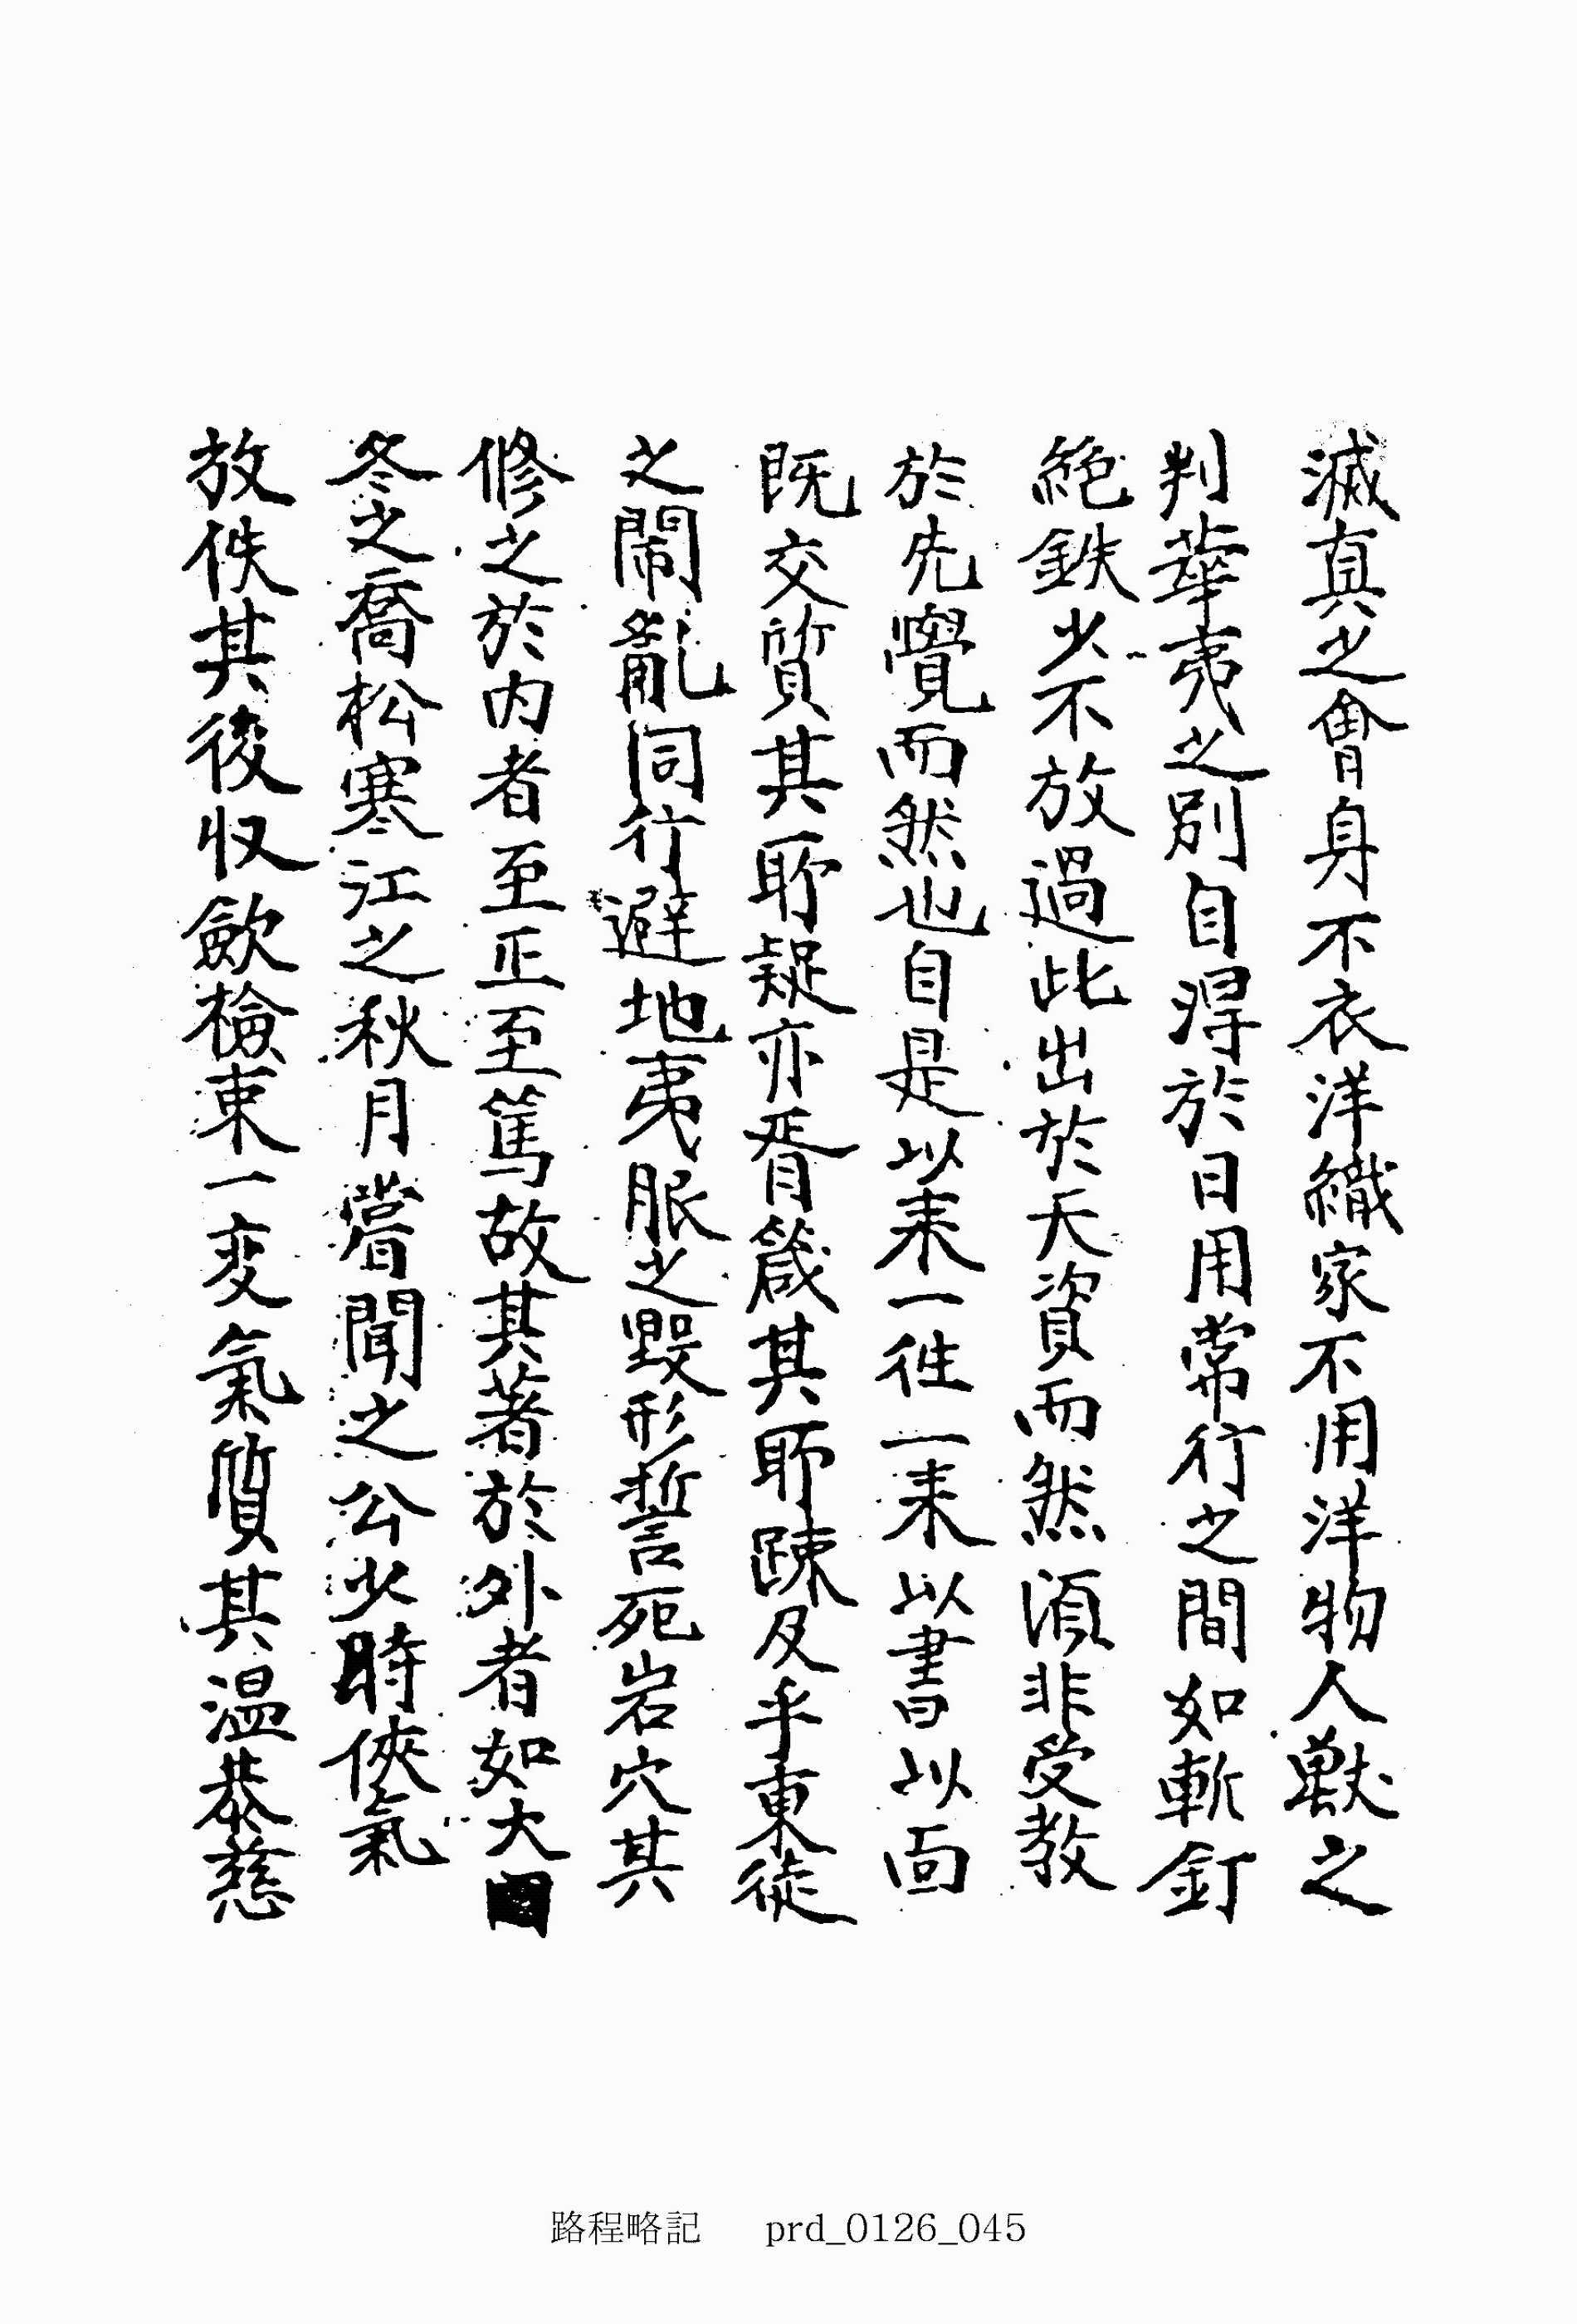 滅真之會身不衣洋織家不用洋物人獸之
判華夷之別自得於日用常行之間如斬釘
絶鉄少不放過此出於天資而然須非受教
於先覺而然也自是以来一徃一来以書以面
既交質其所疑亦胥箴其所疎及乎東徒
之鬧亂同行避地夷服之毀形誓死岩穴其
修之於内者至正至篤故其著於外者如大
冬之喬松寒江之秋月嘗聞之公少時俠氣
放佚其後収斂檢束一变氣質其温恭慈
路程略記 prd_0126_045